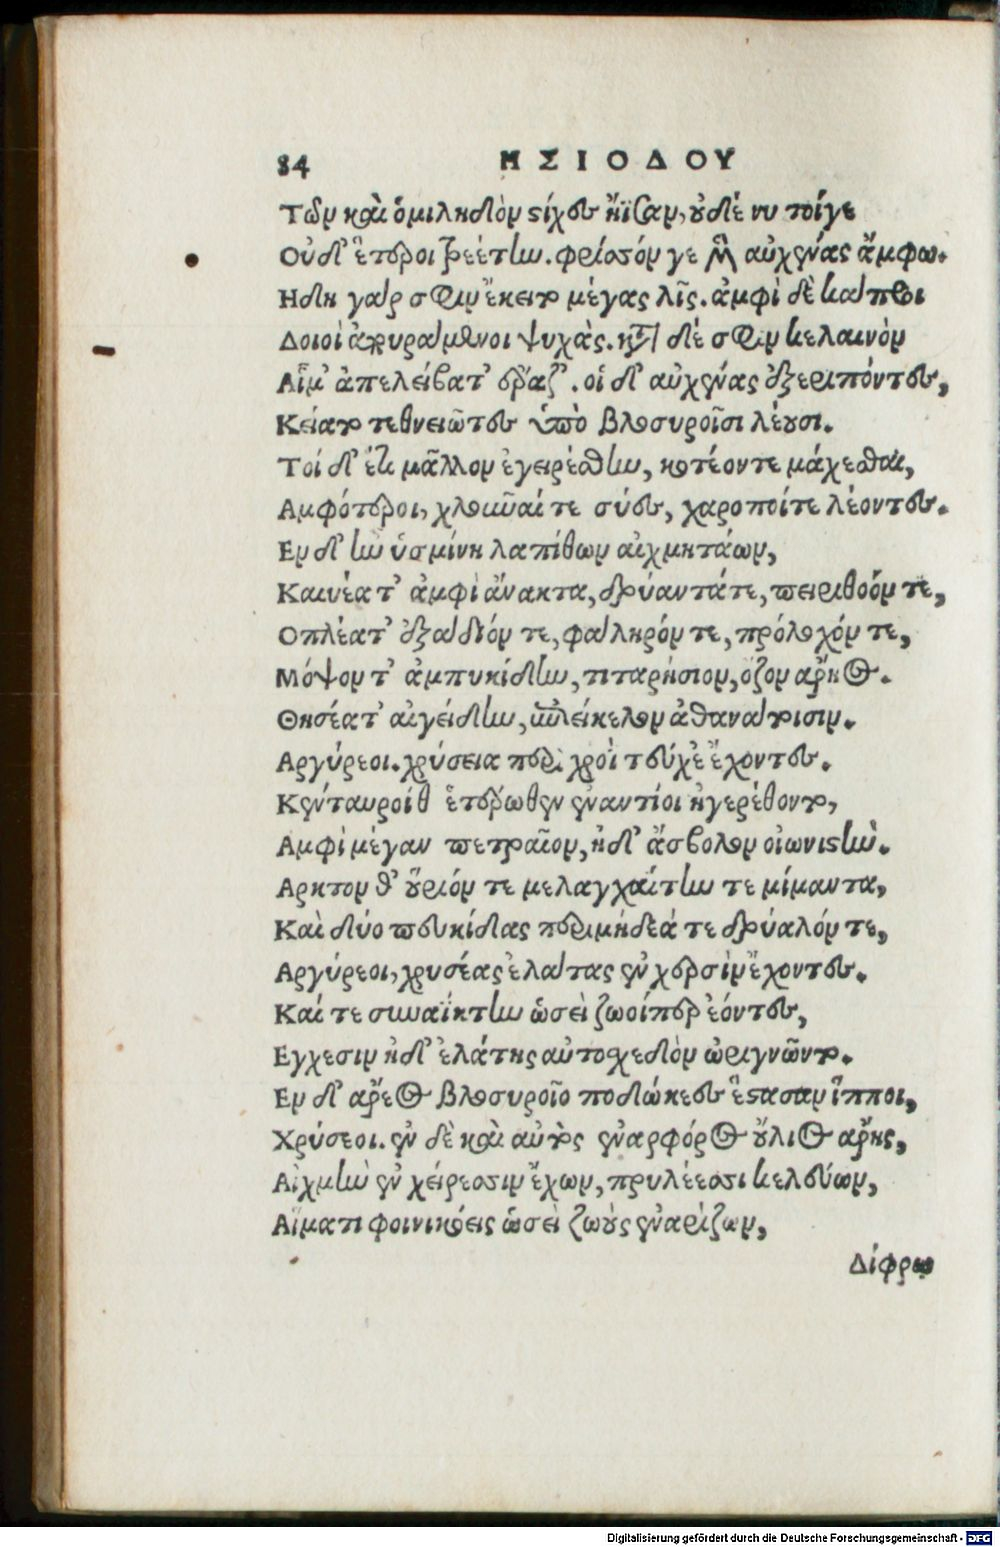 84 ΗΣΙΟΔΟΥ
Τῶν καὶ ὁμιληδὸν στίχες ἤϊσαν, οὐδέ νυ τοίγε
Οὐδ' ἕτεροι τρεέτην. φρίασόν γε μὴν αὐχένας ἄμφω.
Ηδη γάρ σφιν ἔκειτο μέγας λῖς. ἀμφὶ δὲ κάπροι
Δοιοὶ ἀπουράμενοι ψυχὰς. κατὰ δέ σφιν κελαινὸν
Αἷμ' ἀπελείβατ' ἔραζ'. οἱ δ' αὐχένας ἐξεριπόντες,
Κείατο τεθνειῶτες ὑπὸ βλοσυροῖσι λέουσι.
Τοί δ' ἔτι μᾶλλον ἐγειρέσθην, κοτέοντε μάχεσθαι,
Αμφότεροι, χλοῦναί τε σύες, χαροποίτε λέοντες.
Εν δ' ἦν ὑσμίνη λαπίθων αἰχμητάων,
Καινέα τ' ἀμφὶ ἄνακτα, δρύαντάτε, πειριθοόν τε,
Οπλέα τ' ἐξάδιόν τε, φάληρόν τε, πρόλοχόν τε,
Μόψον τ' ἀμπυκίδην, τιταρήσιον, ὄζον ἄρηος.
Θησέα τ' αἰγείδην, ἐπιείκελον ἀθανάτοισιν.
Αργύρεοι. χρύσεια περὶ χροῒ τεύχε' ἔχοντες.
Κένταυροίθ' ἑτέρωθεν ἐναντίοι ἠγερέθοντο,
Αμφὶ μέγαν πετραῖον, ἠδ' ἄσβολον οἰωνιστὴν.
Αρκτον θ' οὔριόν τε μελαγχαίτην τε μίμαντα,
Καὶ δύο πευκίδας περιμήδεά τε δρύαλόν τε,
Αργύρεοι, χρυσέας ἐλάτας ἐν χερσὶν ἔχοντες.
Καί τε συναΐκτην ὡσεὶ ζωοίπερ ἐόντες,
Εγχεσιν ἠδ' ἐλάτης αὐτοσχεδὸν ὠριγνῶντο.
Εν δ' ἄρεος βλοσυροῖο ποδώκεες ἕστασαν ἵπποι,
Χρύσεοι. ἐν δὲ καὶ αὐτὸς ἐναρφόρος οὔλιος ἄρης,
Αἰχμὴν ἐν χείρεσσιν ἔχων, πρυλέεσσι κελεύων,
Αἵματι φοινικόεις ὡσεὶ ζωοὺς ἐναρίζων,
Δίφρω
Digitalisierung gefördert durch die Deutsche Forschungsgemeinschaft - DFG